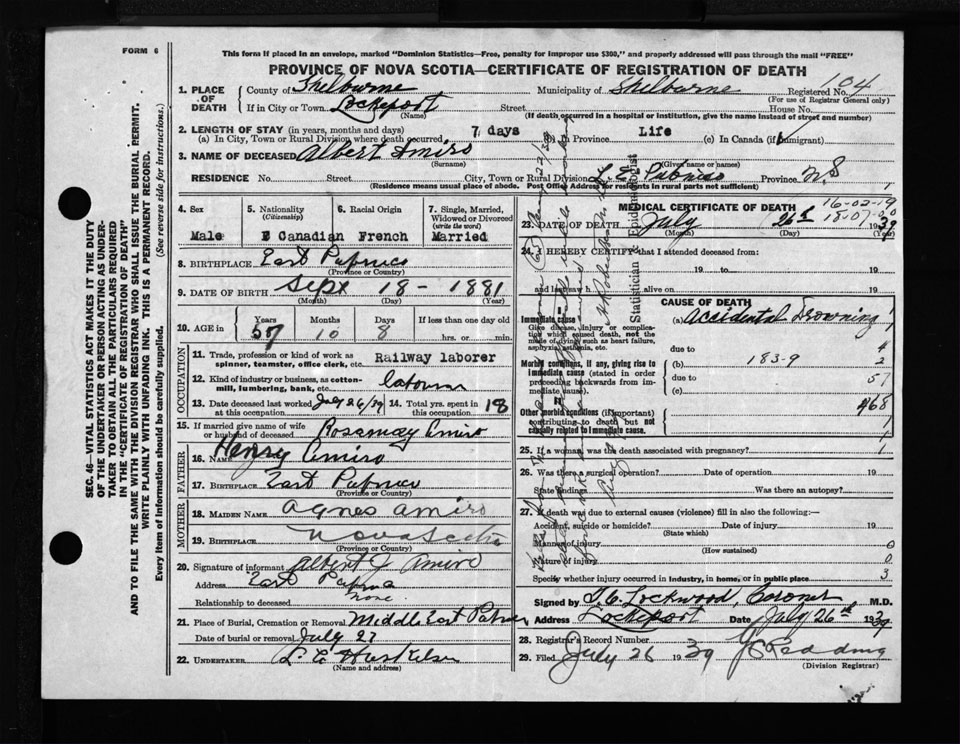 FORM 6
This form if placed in an envelope, marked "Dominion Statistics—Free, penalty for improper use $300," and properly addressed will pass through the mail "FREE"
PROVINCE OF NOVA SCOTIA—CERTIFICATE OF REGISTRATION OF DEATH
SEC. 46—VITAL STATISTICS ACT MAKES IT THE DUTY
OF THE UNDERTAKER OR PERSON ACTING AS UNDER-
TAKER TO OBTAIN ALL THE PARTICULARS REQUIRED
IN THE "CERTIFICATE OF REGISTRATION OF DEATH"
AND TO FILE THE SAME WITH THE DIVISION REGISTRAR WHO SHALL ISSUE THE BURIAL PERMIT.
WRITE PLAINLY WITH UNFADING INK. THIS IS A PERMANENT RECORD.
Every item of Information should be carefully supplied. (See reverse side for instructions.)
1. PLACE OF DEATH County of Shelburne Municipality of Shelburne Registered No. 104
(For use of Registrar General only)
If in City or Town Lockeport Street House No.
(Name) (If death occurred in a hospital or institution, give the name instead of street and number)
2. LENGTH OF STAY (in years, months and days)
(a) In City, Town or Rural Division where death occurred 7 days (b) In Province Life (c) In Canada (if immigrant)
3. NAME OF DECEASED Albert Amiro
(Surname) (Given name or names)
RESIDENCE No. Street City, Town or Rural Division L. E. Pubnico Province N.S
(Residence means usual place of abode. Post Office Address for residents in rural parts not sufficient)
4. Sex Male
5. Nationality (Citizenship) Canadian
6. Racial Origin French
7. Single, Married, Widowed or Divorced (write the word) Married
8. BIRTHPLACE East Pubnico
(Province or Country)
9. DATE OF BIRTH Sept 18 - 1881
(Month) (Day) (Year)
10. AGE in Years 57 Months 10 Days 8 If less than one day old hrs. or min.
OCCUPATION
11. Trade, profession or kind of work as spinner, teamster, office clerk, etc. Railway laborer
12. Kind of industry or business, as cotton-mill, lumbering, bank, etc.
13. Date deceased last worked at this occupation July 26/39 14. Total yrs. spent in this occupation 18
15. If married give name of wife or husband of deceased Rosemay Amiro
FATHER
16. Name Henry Amiro
17. Birthplace East Pubnico
(Province or Country)
MOTHER
18. Maiden Name Agnes Amiro
19. Birthplace Nova Scotia
(Province or Country)
20. Signature of informant Albert J Amiro
Address East
Relationship to deceased none.
21. Place of Burial, Cremation or Removal Middle East
Date of burial or removal July 27
22. Undertaker L E
(Name and address)
MEDICAL CERTIFICATE OF DEATH
16-02-19
18-07-00
23. DATE OF DEATH July 26th 1939
(Month) (Day) (Year)
24. I HEREBY CERTIFY that I attended deceased from:
19 to 19
and last saw h alive on 19
Statistician & Epidemiologist
CAUSE OF DEATH
Immediate cause
Give disease, injury or complication which caused death, not the mode of dying such as heart failure, asphyxia, asthenia, etc.
(a) Accidental Drowning
due to 4
Morbid conditions, if any, giving rise to immediate cause (stated in order proceeding backwards from immediate cause).
(b) 183-9 2
due to 57
(c)
468
Other morbid conditions (if important) contributing to death but not causally related to immediate cause.
25. If a woman, was the death associated with pregnancy?
26. Was there a surgical operation? Date of operation 19
State findings Was there an autopsy?
27. If death was due to external causes (violence) fill in also the following:—
Accident, suicide or homicide? Date of injury 19
(State which)
Manner of injury 0
(How sustained)
Nature of injury 0
Specify whether injury occurred in industry, in home, or in public place 3
Signed by T. C. Lockwood, Coroner M.D.
Address Lockeport Date July 26th 1939
28. Registrar's Record Number
29. Filed July 26 1939
(Division Registrar)